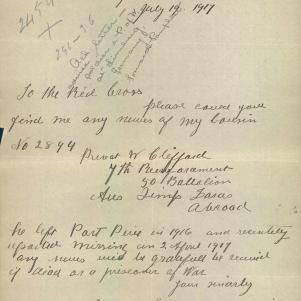 July 19. 1917
2454
X
To the Red Cross
please could you
find me any news of my cousin
No 2894
Privat W Clifford
7th Reinforsment
50 Battalion
Aus
Abroad
he left Port Pirie in 1916 and recently
reported missing on 2 April 1917
any news will be gratefull be received
if dead or a prisoner of War
Your sinarly